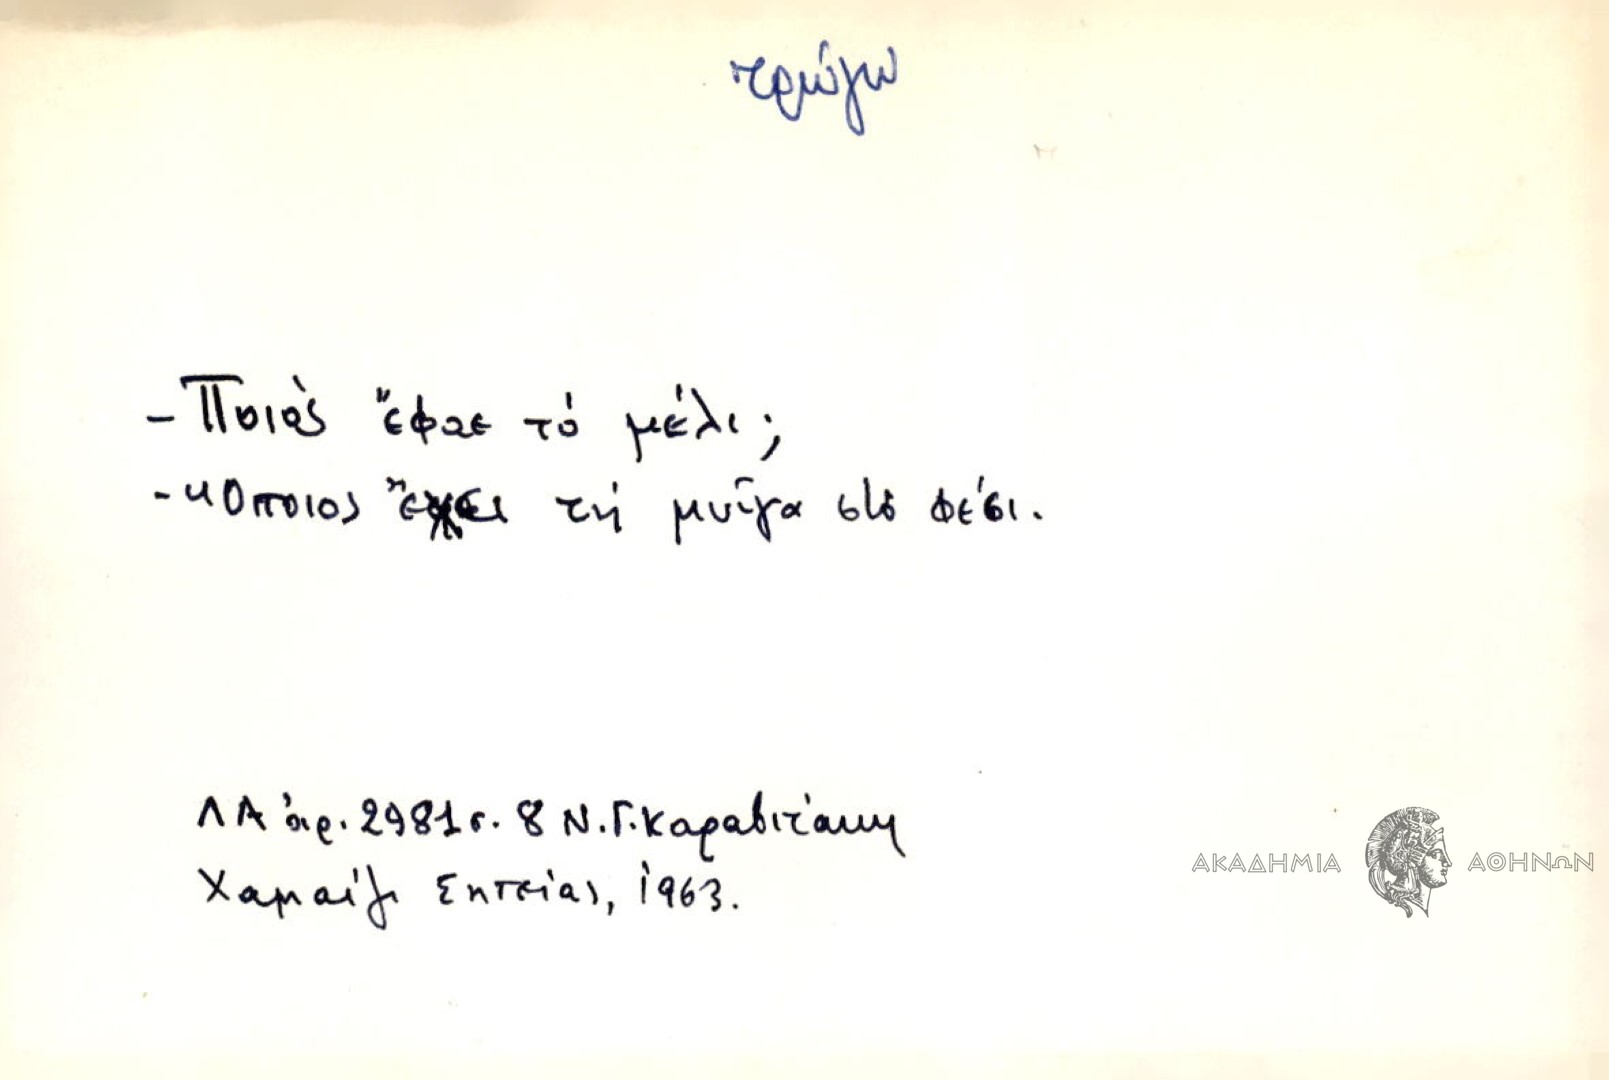 τρώγω
- Ποιὸς ἔφαε τό μέλι;
- Ὅποιος ἔχει τή μυῖγα στό φέσι.
ΛΑ ἀρ. 2981 σ. 8 Ν. Γ. Καραβιτάκη
Χαμαίζι Σητείας, 1963.
ΑΚΑΔΗΜΙΑ ΑΘΗΝΩΝ